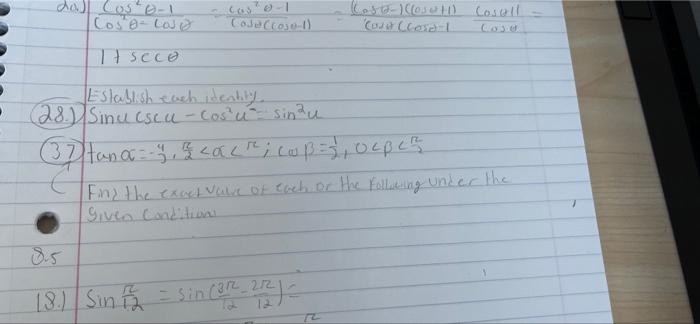 20.) Cos²θ-1 / Cos²θ-Cosθ = cos²θ-1 / Cosθ(cosθ-1) = (Cosθ-1)(Cosθ+1) / Cosθ(Cosθ-1 Cosθ+1 / Cosθ =
1+secθ
Establish each identity.
28.) Sinu cscu - Cos²u = sin²u
37) tanα=-4/3, π/2<α<π; cosβ=1/2, 0<β<π/2
Find the exact value of each of the Following under the
Given Conditions
8.5
18.) Sin π/12 = sin(3π/12 - 2π/12)=
π